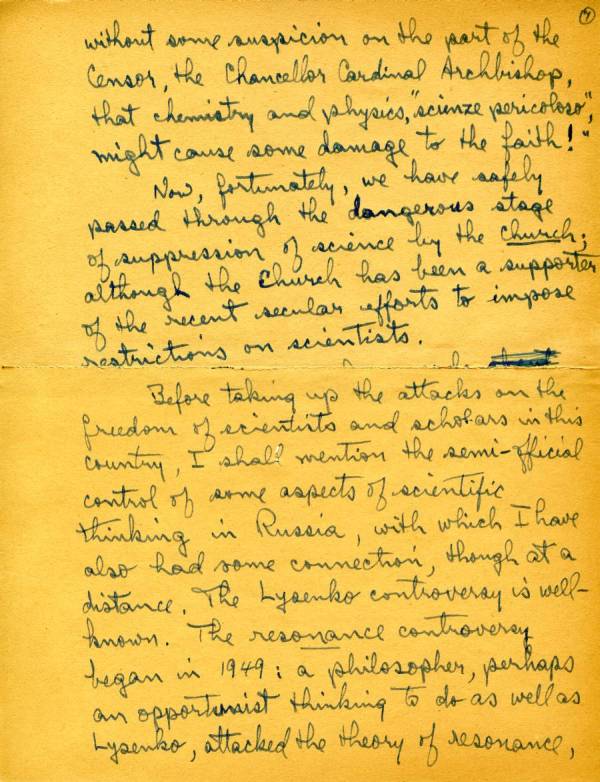 4
without some suspicion on the part of the
Censor, the Chancellor Cardinal Archbishop,
that chemistry and physics, "scienze pericoloso",
might cause some damage to the faith!"
Now, fortunately, we have safely
passed through the dangerous stage
of suppression of science by the Church;
although the Church has been a supporter
of the recent secular efforts to impose
restrictions on scientists.
Before taking up the attacks on the
freedom of scientists and scholars in this
country, I shall mention the semi-official
control of some aspects of scientific
thinking in Russia, with which I have
also had some connection, though at a
distance. The Lysenko controversy is well-
known. The resonance controversy
began in 1949: a philosopher, perhaps
an opportunist thinking to do as well as
Lysenko, attacked the theory of resonance,